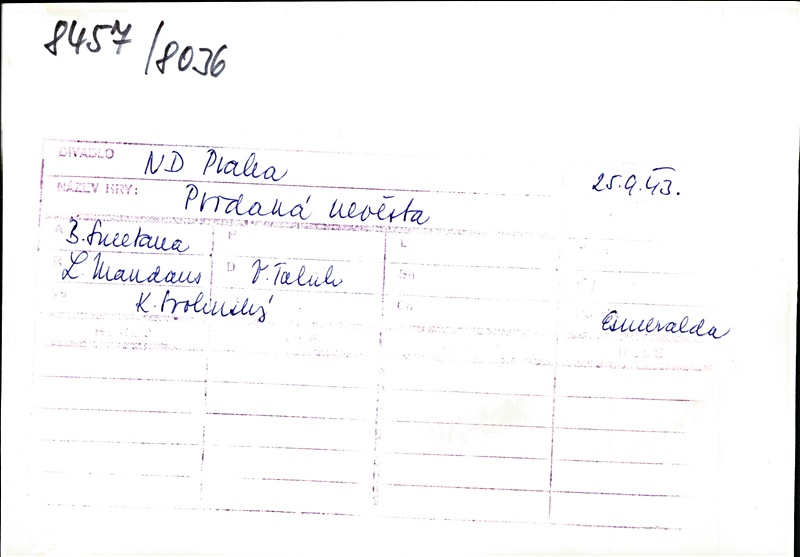 8457/8036
DIVADLO ND Praha 25.9.43.
NÁZEV HRY: Prodaná nevěsta
A B.Smetana P L
R L. Mandaus D V. Talich
K.Svolinský
Esmeralda